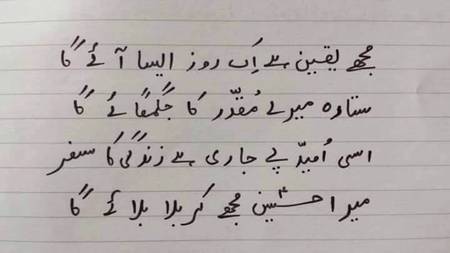 مجھے یقین ہے اَک روز ایسا آئے گا
ستارہ میرے مُقدّر کا جگمگائے گا
اسی اُمیدّ پے جاری ہے زندگی کا سفر
میرا حسینؑ مجھے کربلا بلائے گا